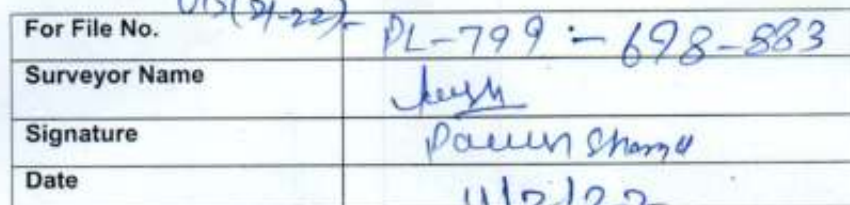 (21-22)-
For File No. PL-799 :- 698-883
Surveyor Name
Signature Pawan Sharma
Date